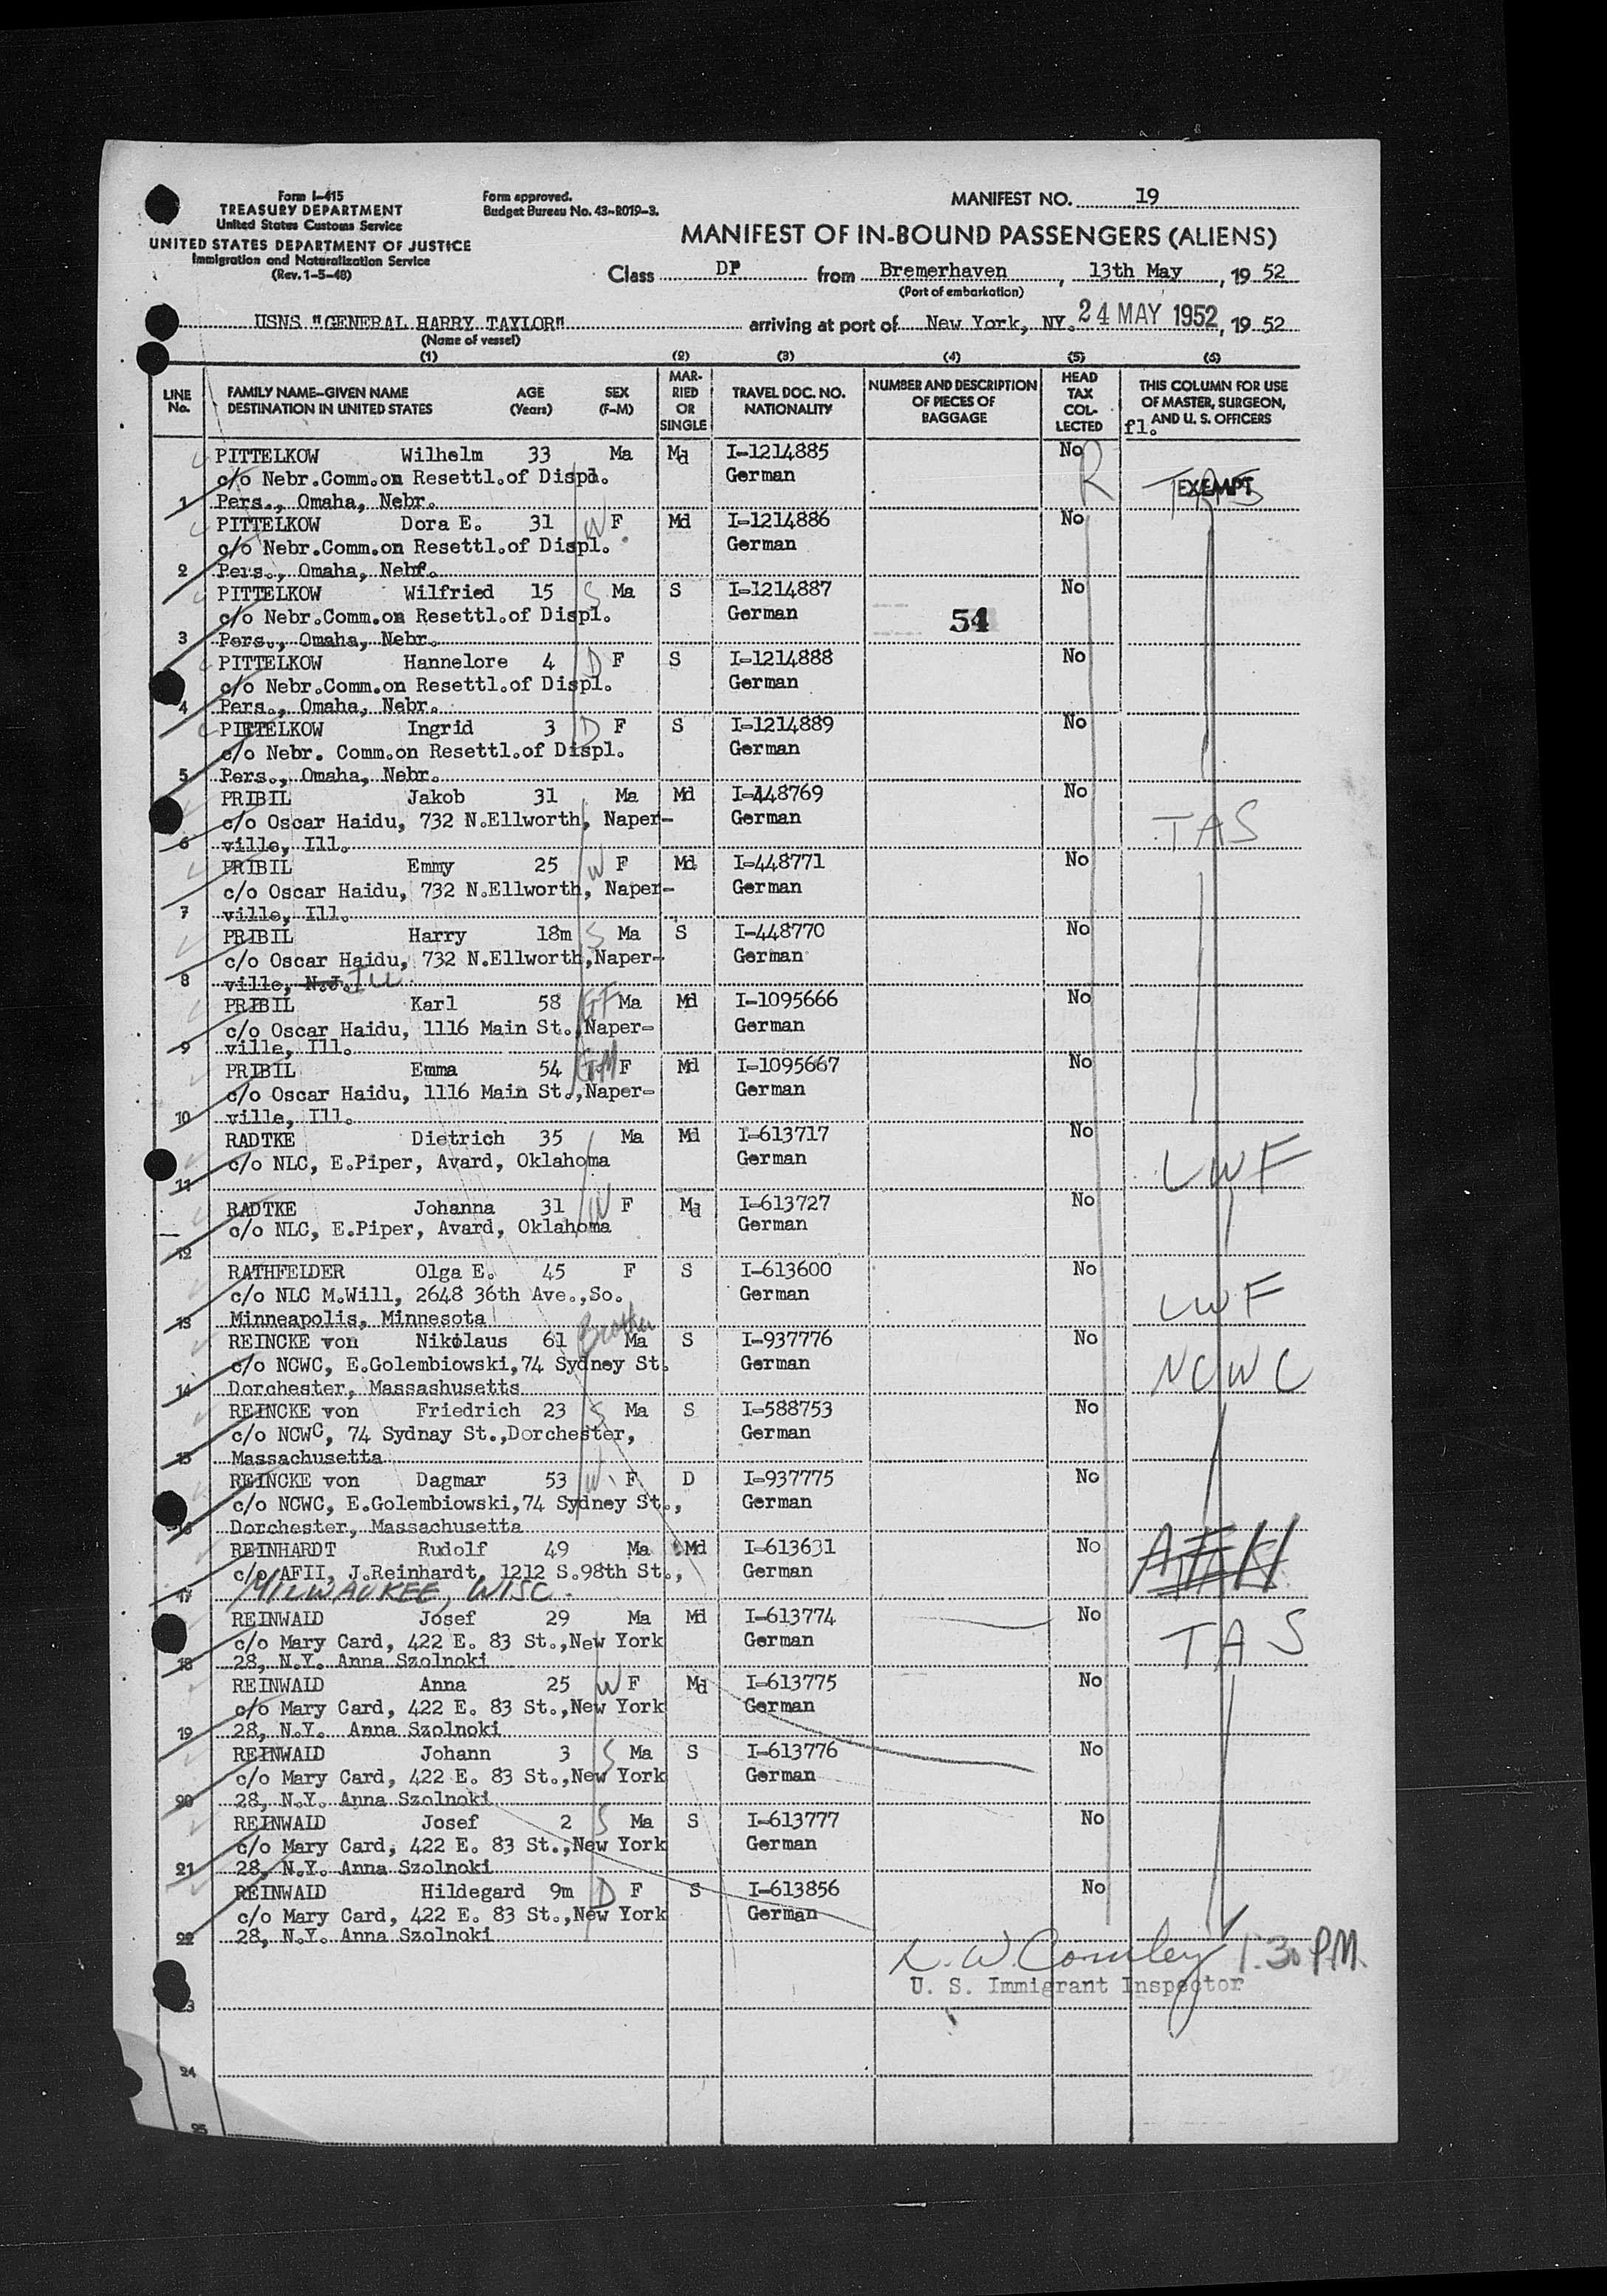 Form I-415
TREASURY DEPARTMENT
United States Customs Service
UNITED STATES DEPARTMENT OF JUSTICE
Immigration and Naturalization Service
(Rev. 1-5-48)
Form approved.
Budget Bureau No. 43-R019-3.
MANIFEST NO. 19
MANIFEST OF IN-BOUND PASSENGERS (ALIENS)
Class DP from Bremerhaven, 13th May, 19 52
(Port of embarkation)
USNS "GENERAL HARRY TAYLOR" arriving at port of New York, NY. 24 MAY 1952, 19 52
(Name of vessel)
(1) (2) (3) (4) (5) (6)
LINE No. FAMILY NAME—GIVEN NAME DESTINATION IN UNITED STATES AGE (Years) SEX (F-M) MARRIED OR SINGLE TRAVEL DOC. NO. NATIONALITY NUMBER AND DESCRIPTION OF PIECES OF BAGGAGE HEAD TAX COLLECTED THIS COLUMN FOR USE OF MASTER, SURGEON, AND U. S. OFFICERS
fl.
PITTELKOW Wilhelm 33 Ma Md I-1214885 No R
c/o Nebr.Comm.on Resettl.of Displ. German TAS EXEMPT
1 Pers., Omaha, Nebr.
PITTELKOW Dora E. 31 W F Md I-1214886 No
c/o Nebr.Comm.on Resettl.of Displ. German
2 Pers., Omaha, Nebr.
PITTELKOW Wilfried 15 S Ma S I-1214887 No
c/o Nebr.Comm.on Resettl.of Displ. German 54
3 Pers., Omaha, Nebr.
PITTELKOW Hannelore 4 D F S I-1214888 No
c/o Nebr.Comm.on Resettl.of Displ. German
4 Pers., Omaha, Nebr.
PITTELKOW Ingrid 3 D F S I-1214889 No
c/o Nebr. Comm.on Resettl.of Displ. German
5 Pers., Omaha, Nebr.
PRIBIL Jakob 31 Ma Md I-448769 No
c/o Oscar Haidu, 732 N.Ellworth, Naper- German TAS
6 ville, Ill.
PRIBIL Emmy 25 W F Md I-448771 No
c/o Oscar Haidu, 732 N.Ellworth, Naper- German
7 ville, Ill.
PRIBIL Harry 18m S Ma S I-448770 No
c/o Oscar Haidu, 732 N.Ellworth,Naper- German
8 ville, N.J. Ill
PRIBIL Karl 58 GF Ma Md I-1095666 No
c/o Oscar Haidu, 1116 Main St.,Naper- German
9 ville, Ill.
PRIBIL Emma 54 GM F Md I-1095667 No
c/o Oscar Haidu, 1116 Main St.,Naper- German
10 ville, Ill.
RADTKE Dietrich 35 Ma Md I-613717 No
c/o NLC, E.Piper, Avard, Oklahoma German LWF
11
RADTKE Johanna 31 W F Md I-613727 No
c/o NLC, E.Piper, Avard, Oklahoma German
12
RATHFELDER Olga E. 45 F S I-613600 No
c/o NLC M.Will, 2648 36th Ave.,So. German LWF
13 Minneapolis, Minnesota
REINCKE von Nikolaus 61 Brother Ma S I-937776 No
c/o NCWC, E.Golembiowski,74 Sydney St. German NCWC
14 Dorchester, Massashusetts
REINCKE von Friedrich 23 S Ma S I-588753 No
c/o NCWC, 74 Sydnay St.,Dorchester, German
15 Massachusetta
REINCKE von Dagmar 53 W F D I-937775 No
c/o NCWC, E.Golembiowski,74 Sydney St., German
16 Dorchester, Massachusetta
REINHARDT Rudolf 49 Ma Md I-613631 No
c/o AFII, J.Reinhardt, 1212 S.98th St., German
17 MILWAUKEE, WISC.
REINWALD Josef 29 Ma Md I-613774 No
c/o Mary Card, 422 E. 83 St.,New York German TAS
18 28, N.Y. Anna Szolnoki
REINWALD Anna 25 W F Md I-613775 No
c/o Mary Card, 422 E. 83 St.,New York German
19 28, N.Y. Anna Szolnoki
REINWALD Johann 3 S Ma S I-613776 No
c/o Mary Card, 422 E. 83 St.,New York German
20 28, N.Y. Anna Szolnoki
REINWALD Josef 2 S Ma S I-613777 No
c/o Mary Card, 422 E. 83 St.,New York German
21 28, N.Y. Anna Szolnoki
REINWALD Hildegard 9m D F S I-613856 No
c/o Mary Card, 422 E. 83 St.,New York German
22 28, N.Y. Anna Szolnoki
1:30 PM.
U. S. Immigrant Inspector
23
24
25